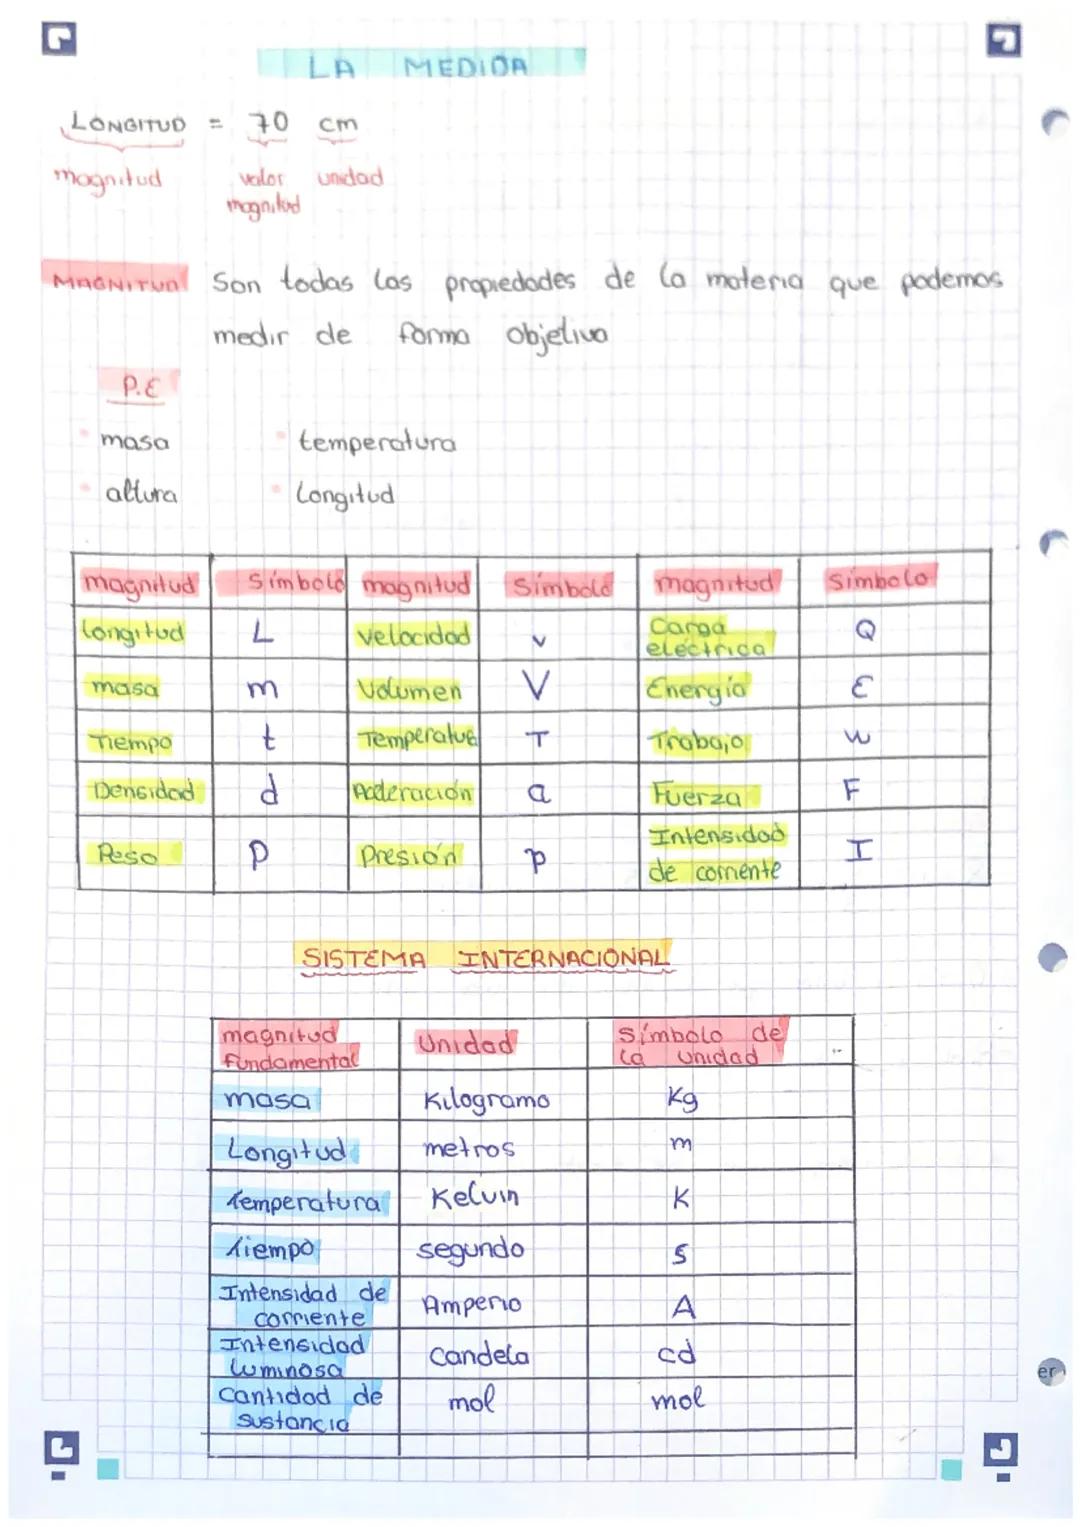 LA MEDIDA
LONGITUD = 70 cm
magnitud valor unidad
magnitud
MAGNITUD Son todas las propiedades de la materia que podemos
medir de forma objetiva
P.E
masa temperatura
altura Longitud
magnitud Símbolo magnitud Símbolo magnitud Símbolo
Longitud L velocidad v Carga eléctrica Q
masa m Volumen V Energía E
Tiempo t Temperatura T Trabajo W
Densidad d Aceleración a Fuerza F
Peso P Presión p Intensidad de corriente I
SISTEMA INTERNACIONAL
magnitud fundamental Unidad Símbolo de la unidad
masa Kilogramo Kg
Longitud metros m
Temperatura Kelvin K
Tiempo segundo s
Intensidad de corriente Amperio A
Intensidad luminosa Candela cd
Cantidad de sustancia mol mol
er